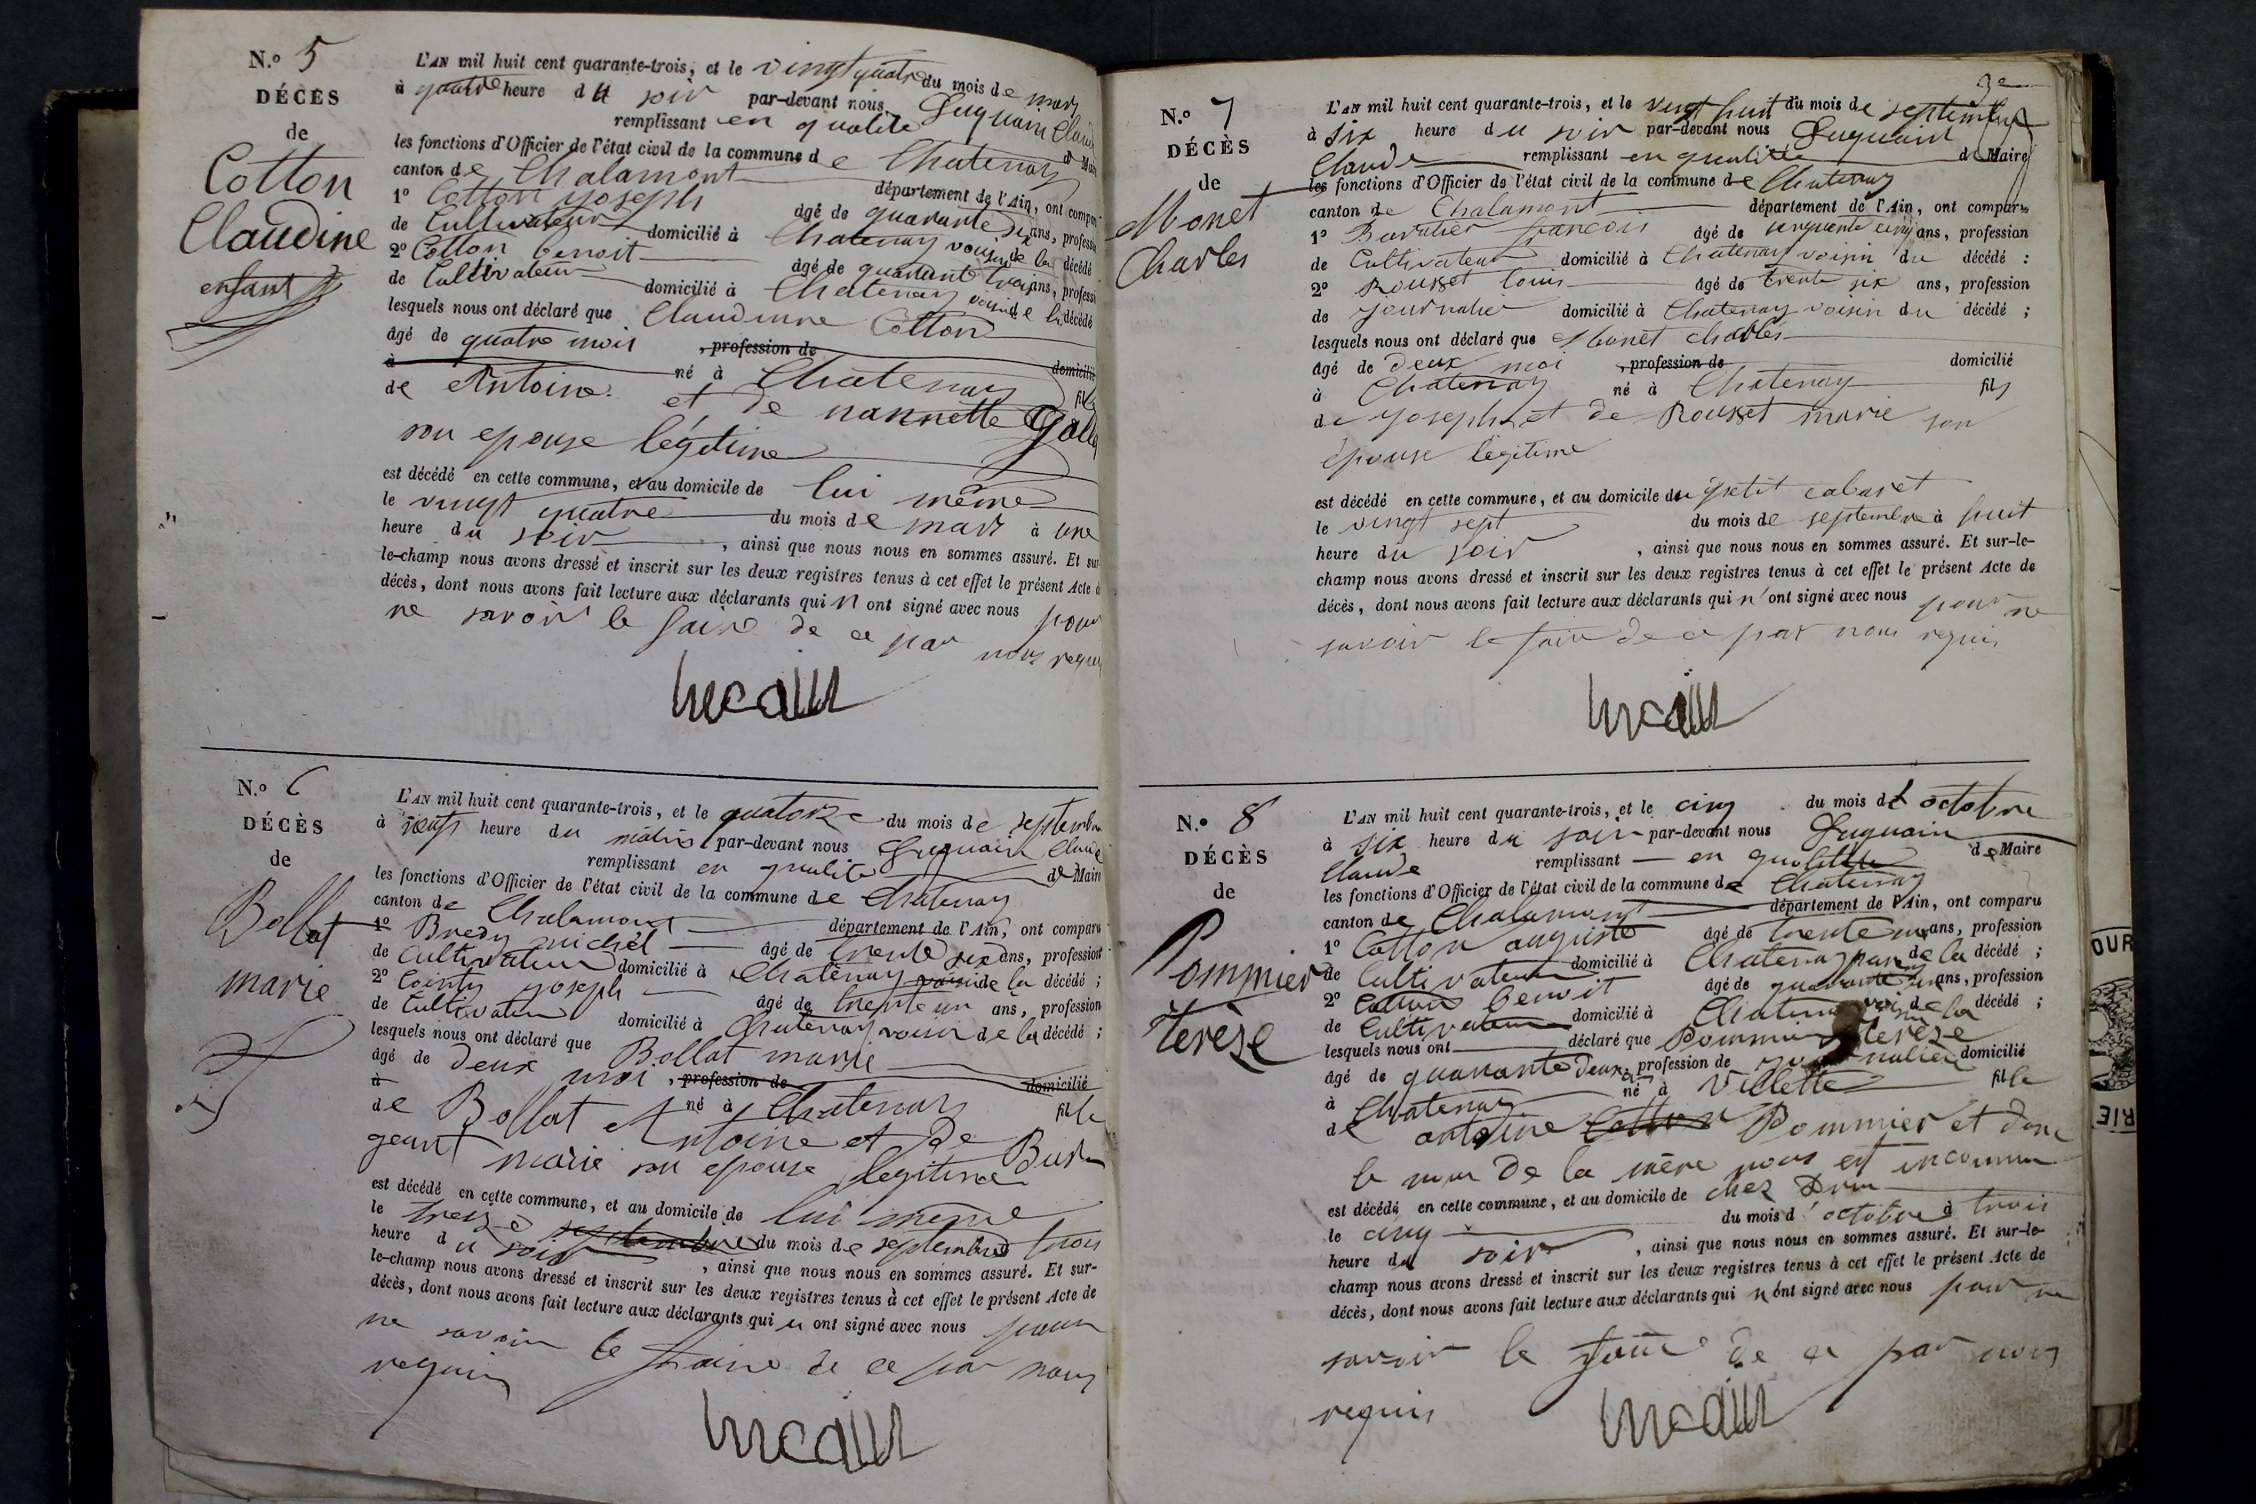 N.o 5
DÉCÈS
de
Cotton
Claudine
enfant
L'AN mil huit cent quarante-trois, et le vingt quatre du mois de mars
à quatre heure du soir par-devant nous Luquain Claude
remplissant en qualité de Maire
les fonctions d'Officier de l'état civil de la commune de Chatenay
canton de Chalamont département de l'Ain, ont comparu
1o Cotton joseph âgé de quarante six ans, profession
de Cultivateur domicilié à Chatenay voisin de la décédé
2o Cotton benoit âgé de quarante trois ans, profession
de Cultivateur domicilié à Chatenay voisin de la décédé
lesquels nous ont déclaré que Claudinne Cotton
âgé de quatre mois , profession de domicilié
à né à Chatenay fille
de Antoine et de nannette
son epouse légitime
est décédé en cette commune, et au domicile de lui même
le vingt quatre du mois de mars à une
heure du soir , ainsi que nous nous en sommes assuré. Et sur-
le-champ nous avons dressé et inscrit sur les deux registres tenus à cet effet le présent Acte de
décès, dont nous avons fait lecture aux déclarants qui n ont signé avec nous pour
ne savoir le faire de ce par nous requis
N.o 6
DÉCÈS
de
Bollat
marie
L'AN mil huit cent quarante-trois, et le quatorze du mois de septembre
à neuf heure du matin par-devant nous Luquain Claude
remplissant en qualité de Maire
les fonctions d'Officier de l'état civil de la commune de Chatenay
canton de Chalamont département de l'Ain, ont comparu
1o Bredy michel âgé de trente six ans, profession
de Cultivateur domicilié à Chatenay voisin de la décédé ;
2o Cointy joseph âgé de trente un ans, profession
de Cultivateur domicilié à Chatenay voisin de la décédé ;
lesquels nous ont déclaré que Bollat marie
âgé de deux moi , profession de domicilié
à né à Chatenay fille
de Bollat Antoine et de
marie son epouse legitime
est décédé en cette commune, et au domicile de lui meme
le treize septembre du mois de septembre à trois
heure du soir , ainsi que nous nous en sommes assuré. Et sur-
le-champ nous avons dressé et inscrit sur les deux registres tenus à cet effet le présent Acte de
décès, dont nous avons fait lecture aux déclarants qui n ont signé avec nous pour
ne savoir le faire de ce par nous
requis
N.o 7
DÉCÈS
de
Monet
Charles
L'AN mil huit cent quarante-trois, et le vingt huit du mois de septembre
à six heure du soir par-devant nous Luquain
Claude remplissant en qualité de Maire
les fonctions d'Officier de l'état civil de la commune de Chatenay
canton de Chalamont département de l'Ain, ont comparu
1o francois âgé de cinquante cinq ans, profession
de Cultivateur domicilié à Chatenay voisin du décédé :
2o Rousset louis âgé de trente six ans, profession
de journalier domicilié à Chatenay voisin du décédé ;
lesquels nous ont déclaré que Monet charles
âgé de deux moi , profession de domicilié
à Chatenay né à Chatenay fils
de joseph et de Rousset marie son
épouse légitime
est décédé en cette commune, et au domicile du petit cabaret
le vingt sept du mois de septembre à huit
heure du soir , ainsi que nous nous en sommes assuré. Et sur-le-
champ nous avons dressé et inscrit sur les deux registres tenus à cet effet le présent Acte de
décès, dont nous avons fait lecture aux déclarants qui n'ont signé avec nous pour ne
savoir le faire de ce par nous requis
N.o 8
DÉCÈS
de
Pommier
terèse
L'AN mil huit cent quarante-trois, et le cinq du mois d octobre
à six heure du soir par-devant nous Luquain
Claude remplissant en qualité de Maire
les fonctions d'Officier de l'état civil de la commune de Chatenay
canton de Chalamont département de l'Ain, ont comparu
1o Cotton auguste âgé de trente ans, profession
de Cultivateur domicilié à Chatenay de la décédé ;
2o benoit âgé de quarante ans, profession
de Cultivateur domicilié à Chatenay voisin de la décédé ;
lesquels nous ont déclaré que Pommier terèse
âgé de quarante deux , profession de journalier domicilié
à Chatenay né à Villette fille
de antoine Cotton Pommier et dont
le nom de la mère nous est inconnu
est décédé en cette commune, et au domicile de chez
le cinq du mois d'octobre à trois
heure du soir , ainsi que nous nous en sommes assuré. Et sur-le-
champ nous avons dressé et inscrit sur les deux registres tenus à cet effet le présent Acte de
décès, dont nous avons fait lecture aux déclarants qui n ont signé avec nous pour ne
savoir le faire de ce par nous
requis